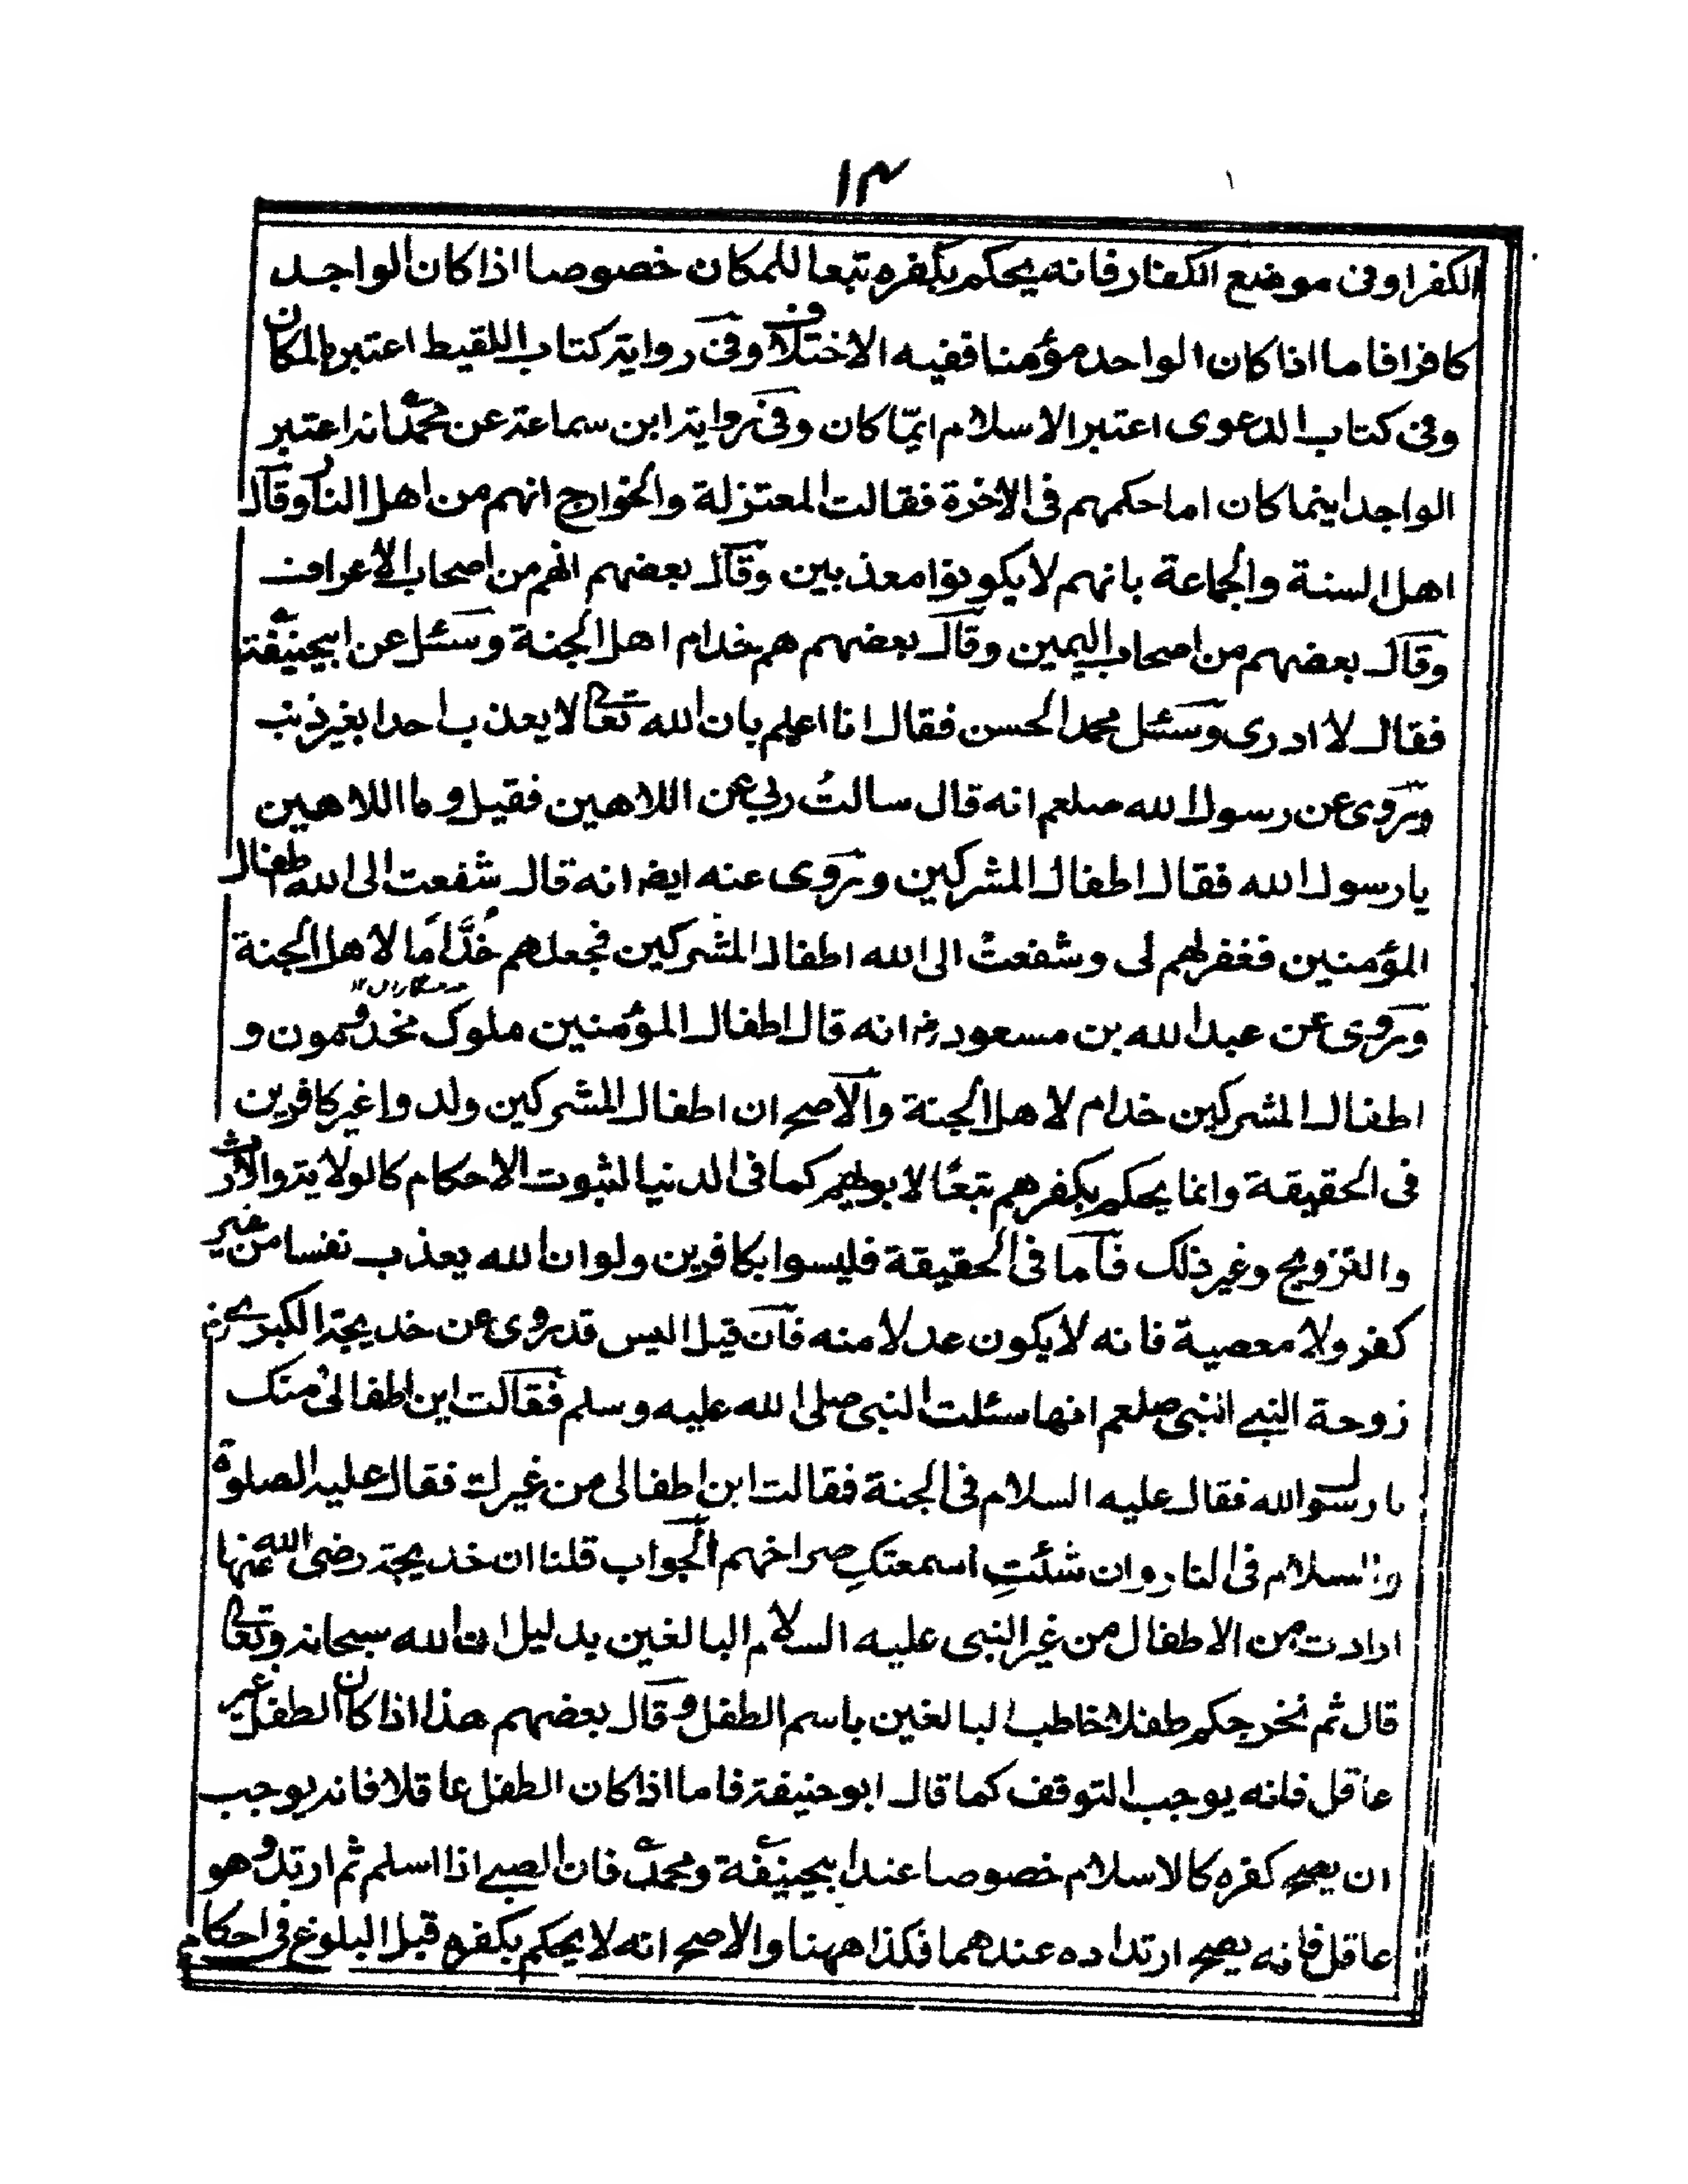 ١٣
الكفر او فى موضع الكفار فانه يحكم بكفره تبعا للمكان خصوصا اذا كان الواجد
كافرا فاما اذا كان الواجد مؤمنا ففيه الاختلاف وفى رواية كتاب اللقيط اعتبر بالمكان
وفى كتاب الدعوى اعتبر الاسلام ايّما كان وفى رواية ابن سماعة عن محمدؒ انه اعتبر
الواجد اينما كان اما حكمهم فى الاخرة فقالت المعتزلة والخوارج انهم من اهل النار وقال
اهل السنة والجماعة بانهم لا يكونوا معذبين وقال بعضهم انهم من اصحاب الاعراف
وقال بعضهم من اصحاب اليمين وقال بعضهم هم خدام اهل الجنة وسئل عن ابيحنيفة
فقال لا ادرى وسئل محمد الحسن فقال انا اعلم بان الله تعالى لا يعذب احدا بغير ذنب
وتروى عن رسول الله صلعم انه قال سالتُ ربى عن اللاهين فقيل وما اللاهين
يا رسول الله فقال اطفال المشركين وتروى عنه ايضا انه قال شفعت الى الله اطفال
المؤمنين فغفر لهم لى وشفعتُ الى الله اطفال المشركين فجعلهم خُدَّامًا لاهل الجنة
وتروى عن عبد الله بن مسعود رض انه قال اطفال المؤمنين ملوك مخدومون و
اطفال المشركين خدام لاهل الجنة والاصح ان اطفال المشركين ولدوا غير كافرين
فى الحقيقة وانما يحكم بكفرهم تبعًا لابويهم كما فى الدنيا لثبوت الاحكام كالولاية والارث
والتزويج وغير ذلك فاما فى الحقيقة فليسوا بكافرين ولو ان الله يعذب نفسا من غير
كفر ولا معصية فانه لا يكون عدلا منه فان قيل اليس قد روى عن خديجة الكبرى رض
زوحة النبى انبى صلعم انها سئلت النبى صلى الله عليه وسلم فقالت اين اطفالى منك
يا رسول الله فقال عليه السلام فى الجنة فقالت اين اطفالى من غيرك فقال عليه الصلوة
والسلام فى النار وان شئتِ اسمعتكِ صراخهم الجواب قلنا ان خديجة رضى الله عنها
ارادت من الاطفال من غير النبى عليه السلام البالغين بدليل ان الله سبحانه وتعالى
قال ثم نخرجكم طفلا خاطب البالغين باسم الطفل وقال بعضهم هذا اذا كان الطفل غير
عاقل فانه يوجب التوقف كما قال ابو حنيفة فاما اذا كان الطفل عاقلا فانه يوجب
ان يصح كفره كالاسلام خصوصا عند ابيحنيفةؒ ومحمدؒ فان الصبى اذا اسلم ثم ارتد وهو
عاقل فانه يصح ارتداده عندهما فكذا ههنا والاصح انه لا يحكم بكفره قبل البلوغ فى احكام